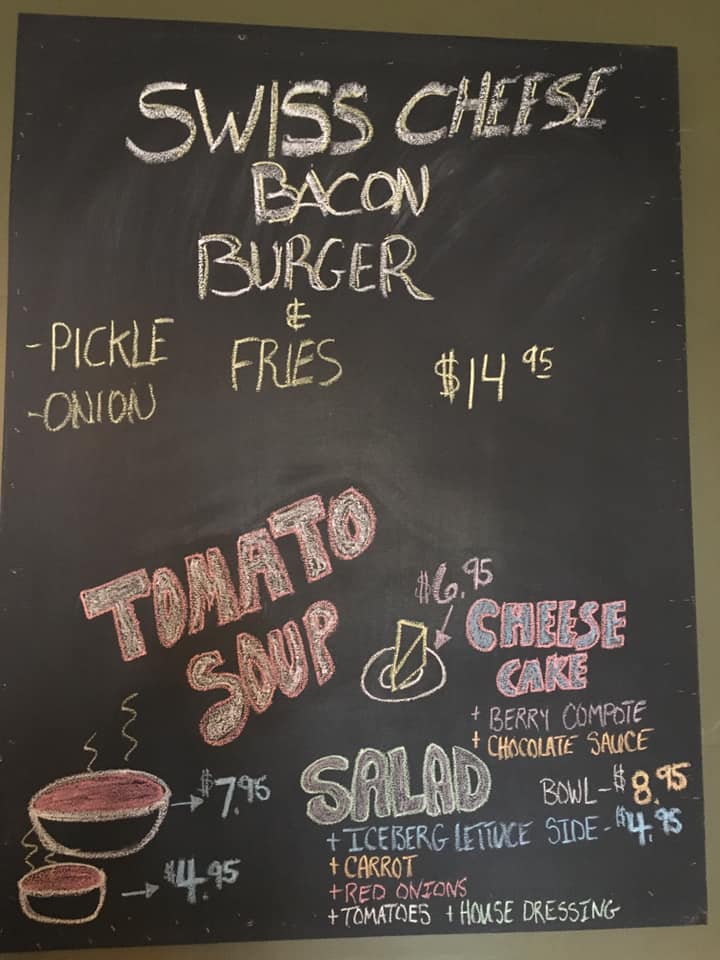 SWISS CHEESE
BACON
BURGER
&
FRIES
-PICKLE
-ONION
$14.95
TOMATO
SOUP
$7.95
$4.95
$6.95
CHEESE
CAKE
+ BERRY COMPOTE
+ CHOCOLATE SAUCE
SALAD
BOWL-$8.95
SIDE-$4.95
+ ICEBERG LETTUCE
+ CARROT
+ RED ONIONS
+ TOMATOES + HOUSE DRESSING